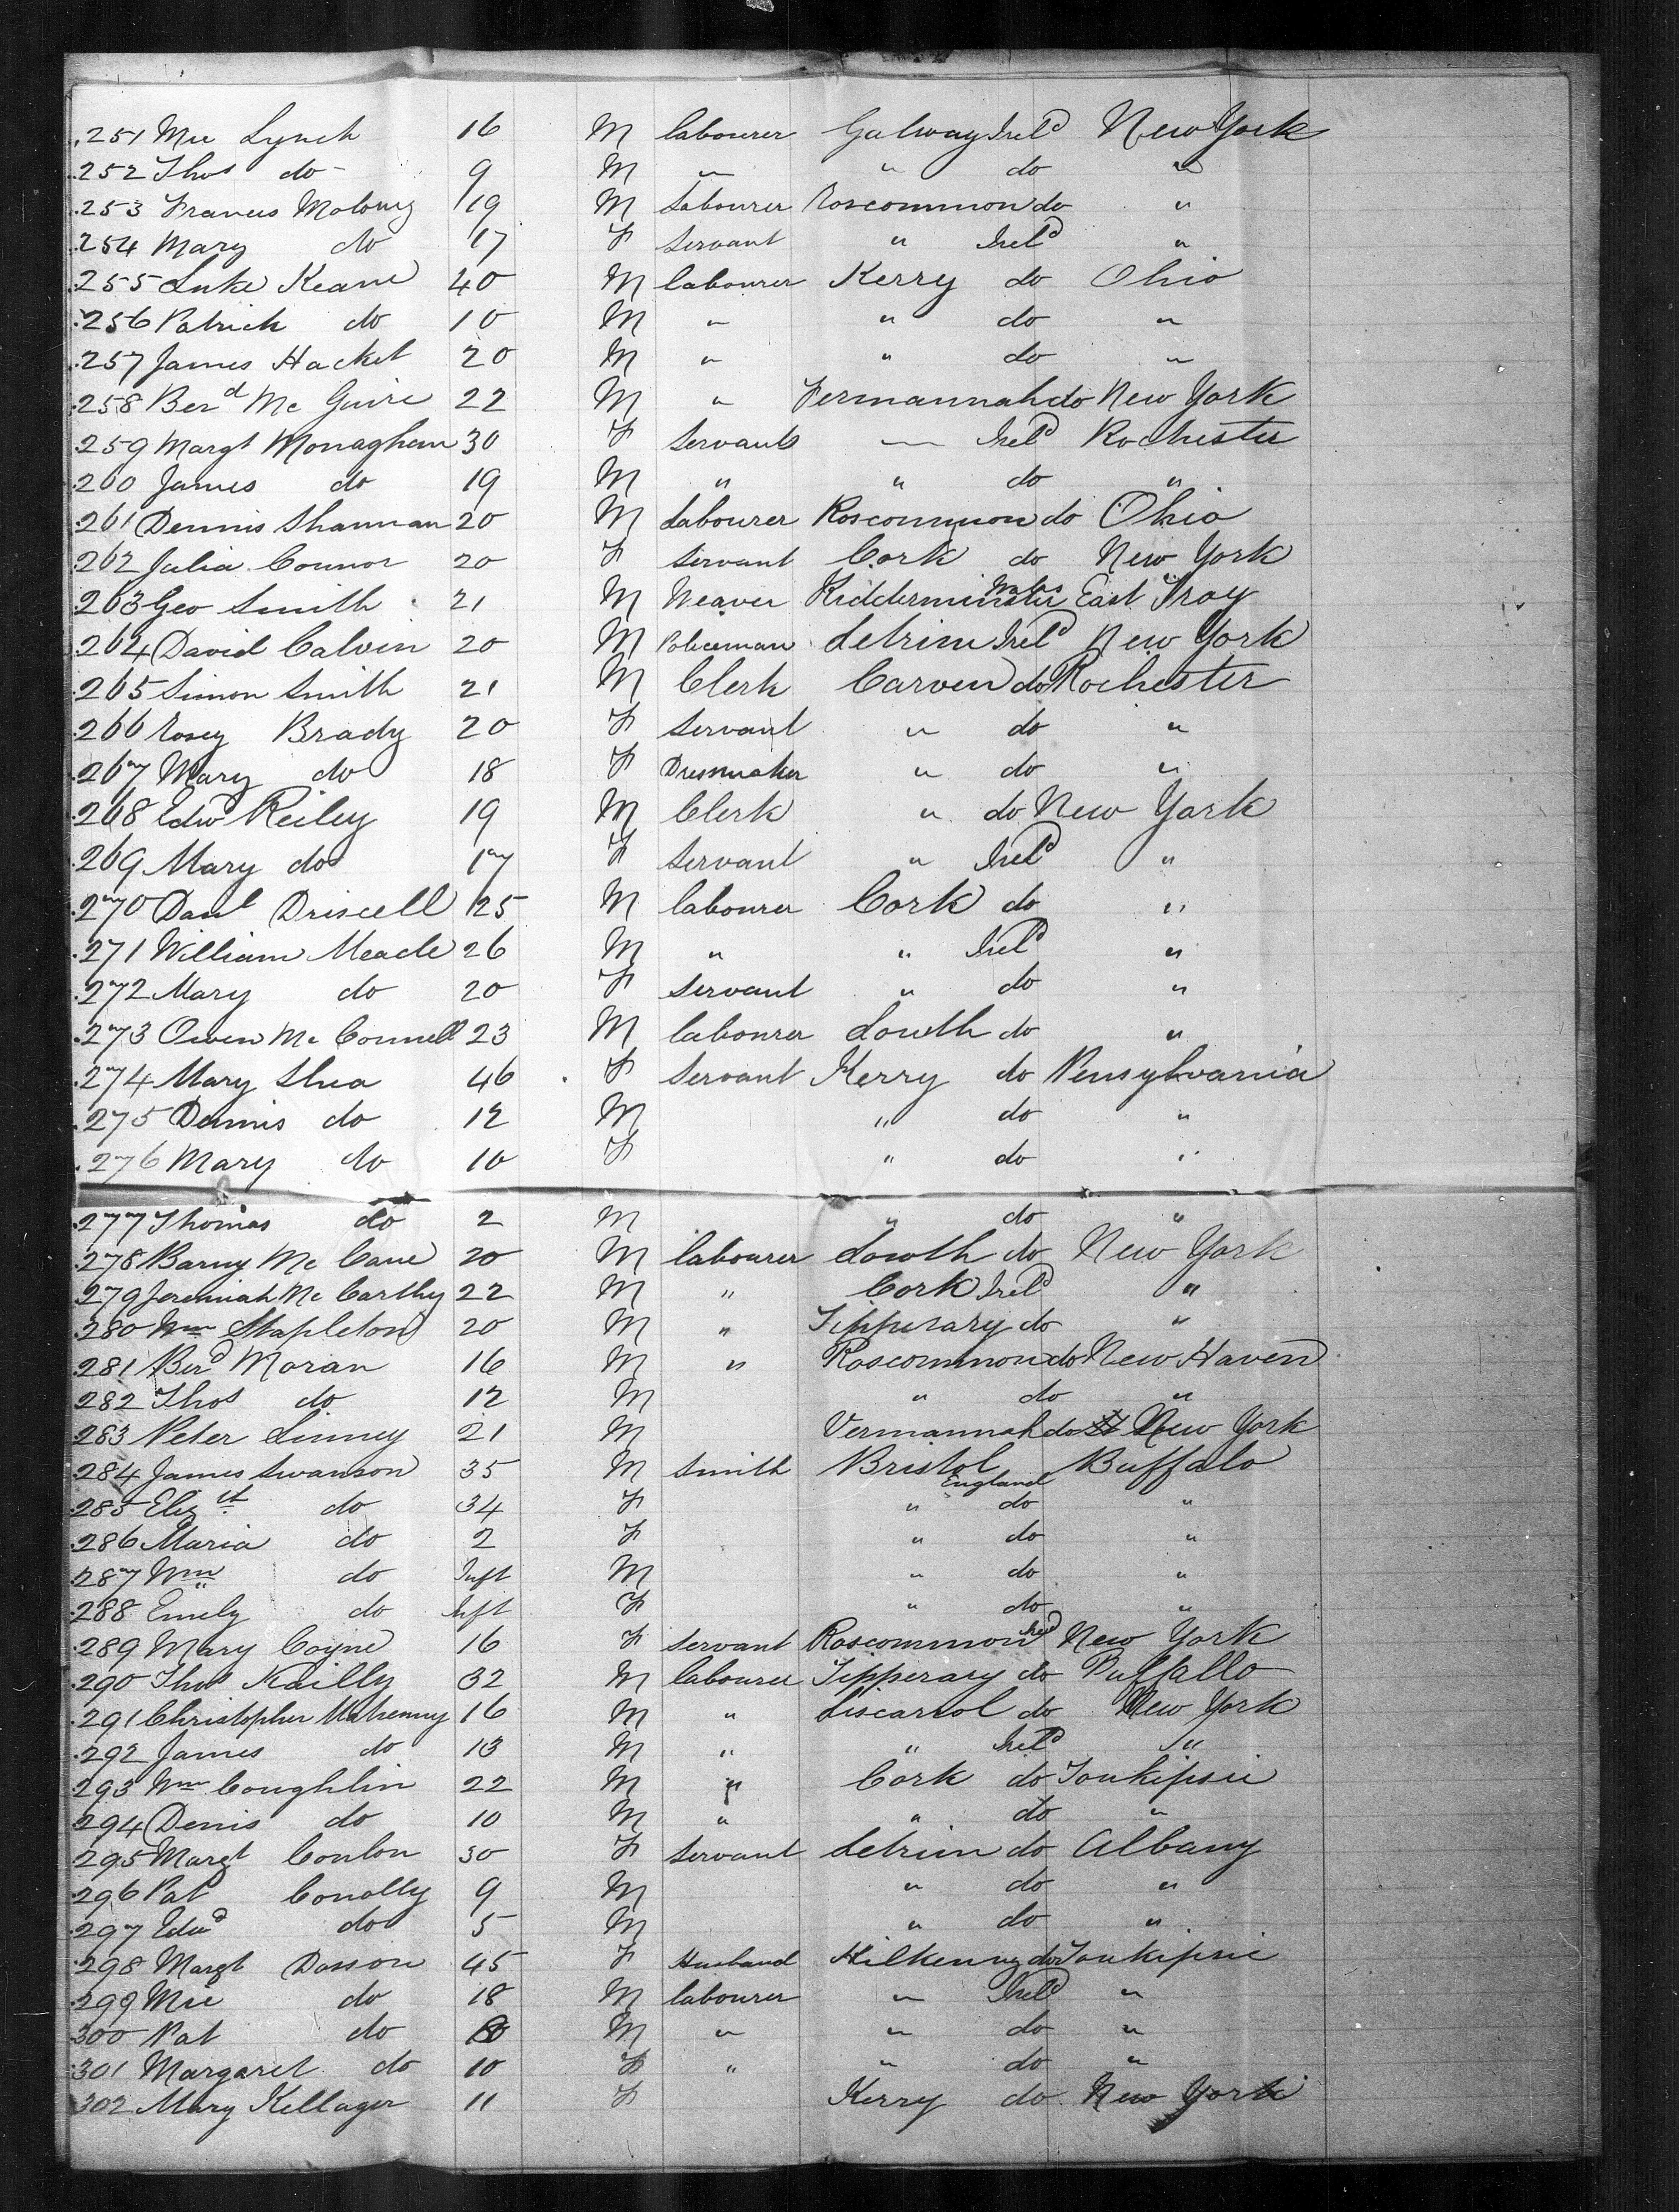 251 Mic Lynch 16 M labourer Galway Ireld New York
252 Thos do 9 M " " do "
253 Francis Molony 19 M Labourer Roscommon do "
254 Mary do 17 F Servant " Ireld "
255 Luke Keane 40 M labourer Kerry do Ohio
256 Patrick do 10 M " " do "
257 James Hacket 20 M " " do "
258 Berd Mc Guire 22 M " Fermannah do New York
259 Margt Monagham 30 F Servants — Ireld Rochester
260 James do 19 M " " do "
261 Dennis Shannan 20 M Labourer Roscommon do Ohio
262 Julia Connor 20 F Servant Cork do New York
263 Geo Smith 21 M Weaver Kidderminster East Troy
264 David Calvin 20 M Policeman Letrim Ireld New York
265 Simon Smith 21 M Clerk Carven do Rochester
266 Rosey Brady 20 F Servant " do "
267 Mary do 18 F Dressmaker " do "
268 Edwd Reiley 19 M Clerk " do New York
269 Mary do 17 F Servant " Ireld "
270 Danl Driscell 25 M labourer Cork do "
271 William Meade 26 M " " Ireld "
272 Mary do 20 F Servant " do "
273 Owen Mc Connell 23 M labourer Louth do "
274 Mary Shea 46 F Servant Kerry do Pensylvania
275 Dennis do 12 M " do "
276 Mary do 10 F " do "
277 Thomas do 2 M " do "
278 Barny Mc Cane 20 M labourer Louth do New York
279 Jeremiah Mc Carthy 22 M " Cork Ireld "
280 Wm Stapleton 20 M " Tipperary do "
281 Berd Moran 16 M " Roscommon do New Haven
282 Thos do 12 M " do "
283 Peter Linney 21 M Vermannah do New York
284 James Swanson 35 M Smith Bristol England Buffalo
285 Elizth do 34 F " do "
286 Maria do 2 F " do "
287 Wm do Inft M " do "
288 Emely do Inft F " do "
289 Mary Coyne 16 F Servant Roscommon Ireld New York
290 Thos Nailly 32 M labourer Tipperary do Buffallo
291 Christopher 16 M " Liscarrol do New York
292 James do 13 M " " Ireld "
293 Wm Coughlin 22 M " Cork do Toukipsie
294 Denis do 10 M " " do "
295 Margt Conlon 30 F Servant Letrim do Albany
296 Pat Conolly 9 M " do "
297 Edwd do 5 M " do "
298 Margt Dasson 45 F Husband Kilkenny do Toukipsie
299 Mic do 18 M labourer " Ireld "
300 Pat do M " " do "
301 Margaret do 10 F " " do "
302 Mary Kellager 11 F Kerry do New York